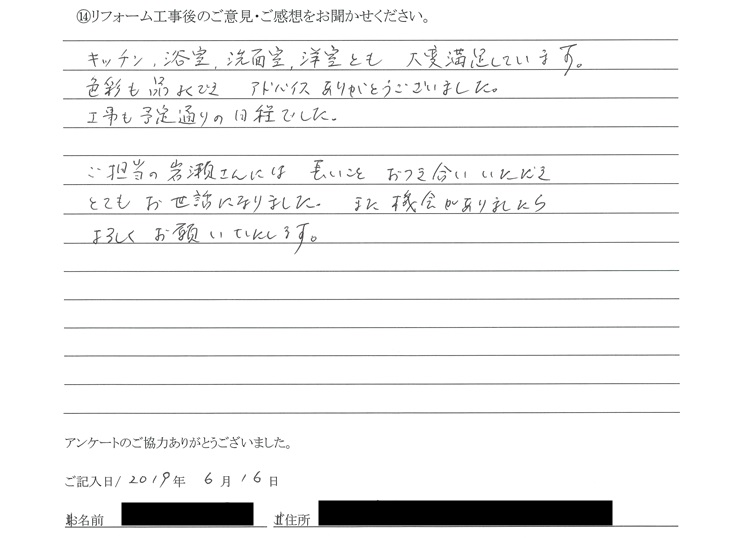 ⑭リフォーム工事後のご意見・ご感想をお聞かせください。
キッチン、浴室、洗面室、洋室とも 大変満足しています。
色彩も品よくでき アドバイスありがとうございました。
工事も予定通りの日程でした。
ご担当の岩瀬さんには 長いこと おつき合いいただき
とてもお世話になりました。 また機会がありましたら
よろしくお願いいたします。
アンケートのご協力ありがとうございました。
ご記入日/ 2019年 6月16日
お名前 ご住所